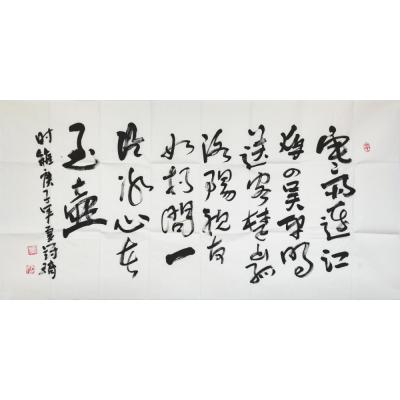 寒雨連江
夜入吴平明
送客楚山孤
洛陽親友
如相問一
片冰心在
玉壶
时維庚子年